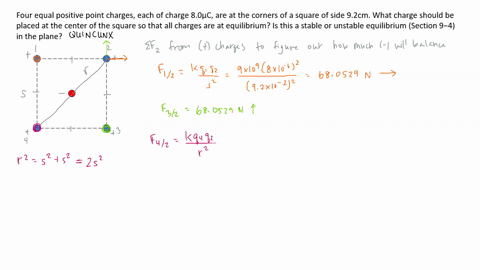 Four equal positive point charges, each of charge 8.0μC, are at the corners of a square of side 9.2cm. What charge should be
placed at the center of the square so that all charges are at equilibrium? Is this a stable or unstable equilibrium (Section 9–4)
in the plane? QUINCUNX
ΣF₂ from (+) charges to figure out how much (-) will balance
F₁/₂ = kq₁q₂/s² = 9x10⁹(8x10⁻⁶)²/(9.2x10⁻²)² = 68.0529 N →
F₃/₂ = 68.0529 N ↑
F₄/₂ = kq₄q₂/r²
+ 1 2 +
r
s
-
+ 4 + 3
r² = s² + s² = 2s²